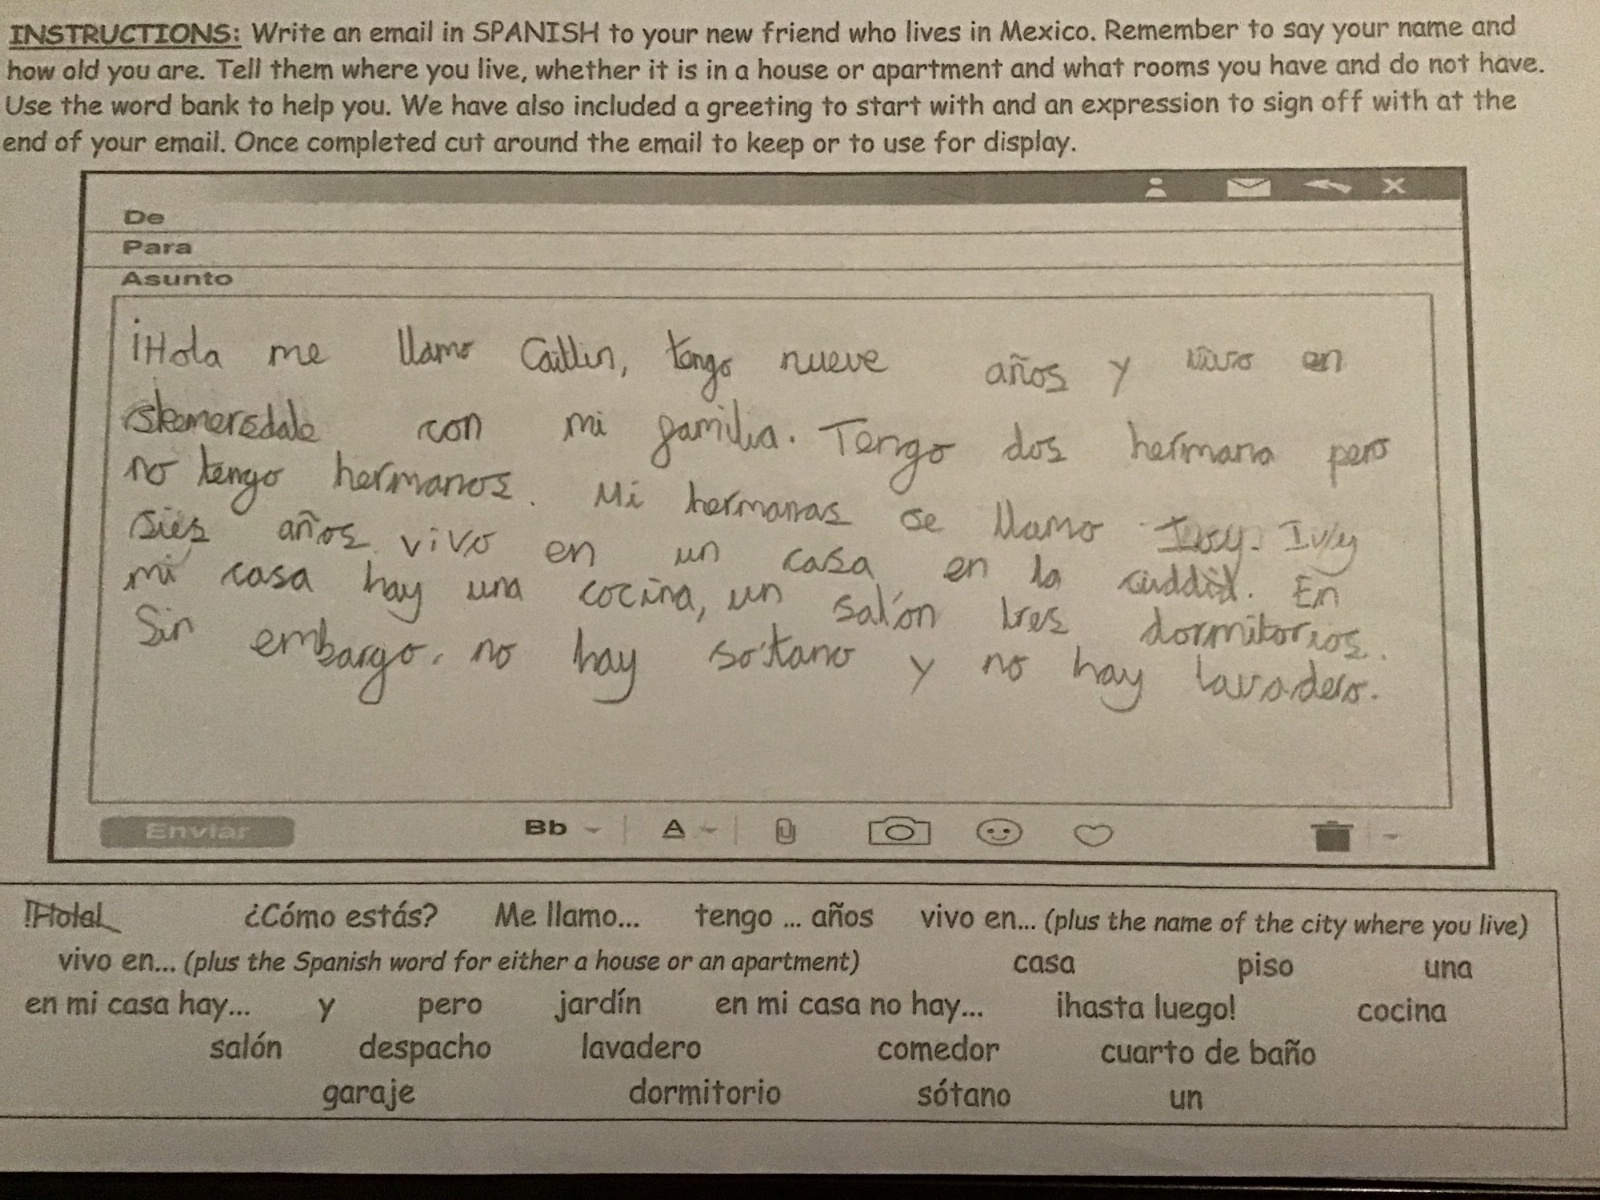 INSTRUCTIONS: Write an email in SPANISH to your new friend who lives in Mexico. Remember to say your name and
how old you are. Tell them where you live, whether it is in a house or apartment and what rooms you have and do not have.
Use the word bank to help you. We have also included a greeting to start with and an expression to sign off with at the
end of your email. Once completed cut around the email to keep or to use for display.
De
Para
Asunto
¡Hola me llamo Caitlin, tengo nueve años y vivo en
Skemersdale con mi familia. Tengo dos hermana pero
no tengo hermanos. Mi hermanas se llamo Ivy. Ivy
sies años. vivo en un casa en la
mi casa hay una cocina, un salón tres dormitorios.
En
Sin embargo, no hay sótano y no hay lavadero.
Enviar
Bb A
¡Hola! ¿Cómo estás? Me llamo... tengo ... años vivo en... (plus the name of the city where you live)
vivo en... (plus the Spanish word for either a house or an apartment) casa piso una
en mi casa hay... y pero jardín en mi casa no hay... ¡hasta luego! cocina
salón despacho lavadero comedor cuarto de baño
garaje dormitorio sótano un